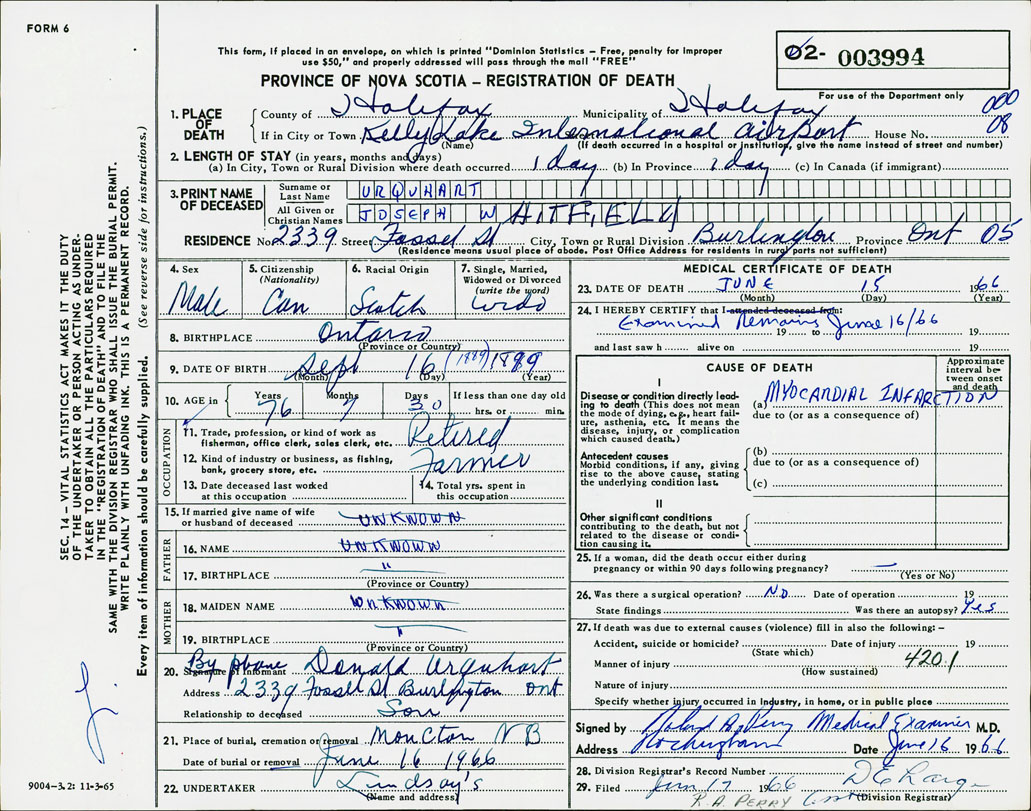 FORM 6
This form, if placed in an envelope, on which is printed "Dominion Statistics – Free, penalty for improper
use $50," and properly addressed will pass through the mail "FREE"
PROVINCE OF NOVA SCOTIA – REGISTRATION OF DEATH
02- 003994
For use of the Department only
000
08
1. PLACE OF DEATH
County of Halifax Municipality of Halifax
If in City or Town Kelly Lake International airport House No.
(Name) (If death occurred in a hospital or institution, give the name instead of street and number)
2. LENGTH OF STAY (in years, months and days)
(a) In City, Town or Rural Division where death occurred 1 day (b) In Province 1 day (c) In Canada (if immigrant)
3. PRINT NAME OF DECEASED
Surname or Last Name URQUHART
All Given or Christian Names JOSEPH WHITFIELD
RESIDENCE No. 2339 Street Fossel St City, Town or Rural Division Burlington Province Ont 05
(Residence means usual place of abode. Post Office Address for residents in rural parts not sufficient)
4. Sex
Male
5. Citizenship
(Nationality)
Can
6. Racial Origin
Scotch
7. Single, Married,
Widowed or Divorced
(write the word)
Wido
8. BIRTHPLACE Ontario
(Province or Country)
9. DATE OF BIRTH Sept 16 (1889) 1889
(Month) (Day) (Year)
10. AGE in
Years 76
Months 7
Days 30
If less than one day old
hrs. or min.
OCCUPATION
11. Trade, profession, or kind of work as
fisherman, office clerk, sales clerk, etc. Retired
12. Kind of industry or business, as fishing,
bank, grocery store, etc. Farmer
13. Date deceased last worked
at this occupation
14. Total yrs. spent in
this occupation
15. If married give name of wife
or husband of deceased UNKNOWN
FATHER
16. NAME UNKNOWN
17. BIRTHPLACE "
(Province or Country)
MOTHER
18. MAIDEN NAME UNKNOWN
19. BIRTHPLACE "
(Province or Country)
By phone
20. Signature of Informant Donald Urquhart
Address 2339 Fossel St Burlington Ont
Relationship to deceased Son
21. Place of burial, cremation or removal Moncton NB
Date of burial or removal June 16 1966
22. UNDERTAKER Lindsay's
(Name and address)
MEDICAL CERTIFICATE OF DEATH
23. DATE OF DEATH JUNE 15 1966
(Month) (Day) (Year)
24. I HEREBY CERTIFY that I attended deceased from:
Examined Remains June 16/66
19 to 19
and last saw h alive on 19
CAUSE OF DEATH
Approximate interval between onset and death
I
Disease or condition directly leading to death (This does not mean the mode of dying, e.g., heart failure, asthenia, etc. It means the disease, injury, or complication which caused death.)
(a) MYOCARDIAL INFARCTION
due to (or as a consequence of)
Antecedent causes
Morbid conditions, if any, giving rise to the above cause, stating the underlying condition last.
(b)
due to (or as a consequence of)
(c)
II
Other significant conditions
contributing to the death, but not related to the disease or condition causing it.
25. If a woman, did the death occur either during
pregnancy or within 90 days following pregnancy? —
(Yes or No)
26. Was there a surgical operation? NO Date of operation 19
State findings Was there an autopsy? Yes
27. If death was due to external causes (violence) fill in also the following:–
Accident, suicide or homicide? Date of injury 19
(State which)
Manner of injury 420.1
(How sustained)
Nature of injury
Specify whether injury occurred in Industry, in home, or in public place
Signed by Roland A. Perry Medical Examiner M.D.
Address Rockingham Date June 16 1966
28. Division Registrar's Record Number
29. Filed Jun 17 1966
(Division Registrar)
R.A. PERRY
SEC. 14 – VITAL STATISTICS ACT MAKES IT THE DUTY
OF THE UNDERTAKER OR PERSON ACTING AS UNDER-
TAKER TO OBTAIN ALL THE PARTICULARS REQUIRED
IN THE "REGISTRATION OF DEATH" AND TO FILE THE
SAME WITH THE DIVISION REGISTRAR WHO SHALL ISSUE THE BURIAL PERMIT.
WRITE PLAINLY WITH UNFADING INK. THIS IS A PERMANENT RECORD.
Every item of information should be carefully supplied. (See reverse side for instructions.)
9004-3.2: 11-3-65